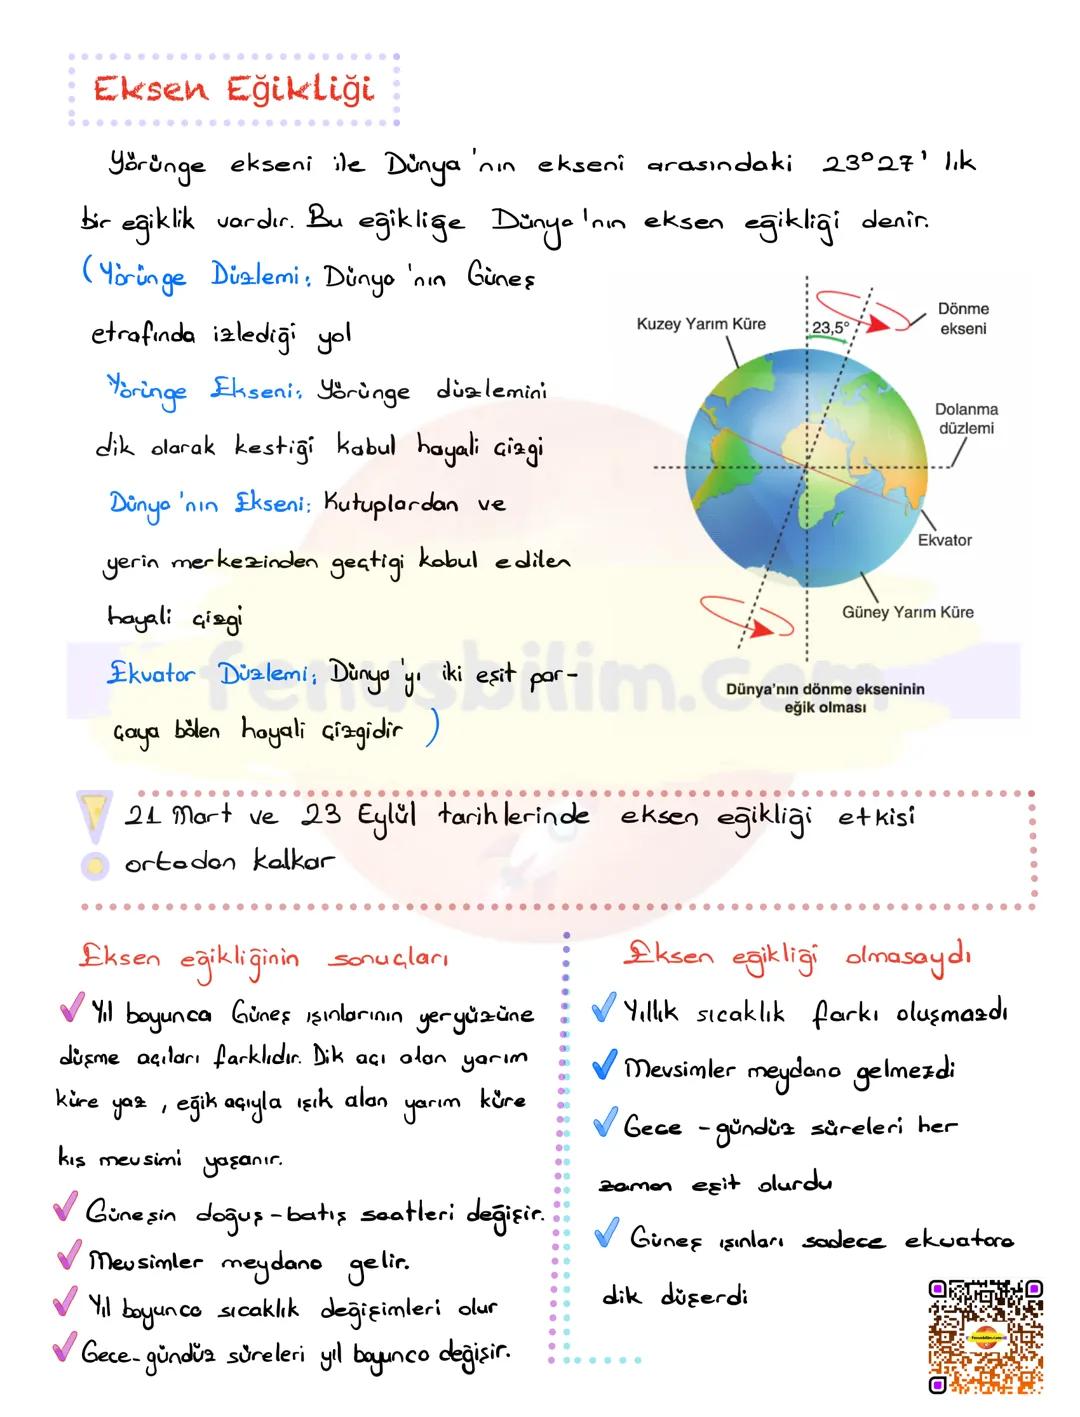 Eksen Eğikliği
Yörünge ekseni ile Dünya'nın ekseni arasındaki 23°27' lık
bir eğiklik vardır. Bu eğikliğe Dünya'nın eksen eğikliği denir.
(Yörünge Düzlemi: Dünya'nın Güneş
etrafında izlediği yol
Yörünge Ekseni: Yörünge düzlemini
dik olarak kestiği kabul hayali çizgi
Dünya'nın Ekseni: Kutuplardan ve
yerin merkezinden geçtigi kabul edilen
hayali çizgi
Ekvator Düzlemi: Dünya'yı iki eşit par-
çaya bölen hayali çizgidir )
Kuzey Yarım Küre
23,5°
Dönme
ekseni
Dolanma
düzlemi
Ekvator
Güney Yarım Küre
Dünya'nın dönme ekseninin
eğik olması
fenusbilim.com
21 Mart ve 23 Eylül tarihlerinde eksen eğikliği etkisi
ortadan kalkar
Eksen eğikliğinin sonuçları
Yıl boyunca Güneş ışınlarının yeryüzüne
düşme açıları farklıdır. Dik açı alan yarım
küre yaz, eğik açıyla ışık alan yarım küre
kış mevsimi yaşanır.
Güneşin doğuş-batış saatleri değişir.
Mevsimler meydana gelir.
Yıl boyunca sıcaklık değişimleri olur
Gece-gündüz süreleri yıl boyunca değişir.
Eksen eğikliği olmasaydı
Yıllık sıcaklık farkı oluşmazdı
Mevsimler meydana gelmezdi
Gece-gündüz süreleri her
zaman eşit olurdu
Güneş ışınları sadece ekvatora
dik düşerdi
fenusbilim.com